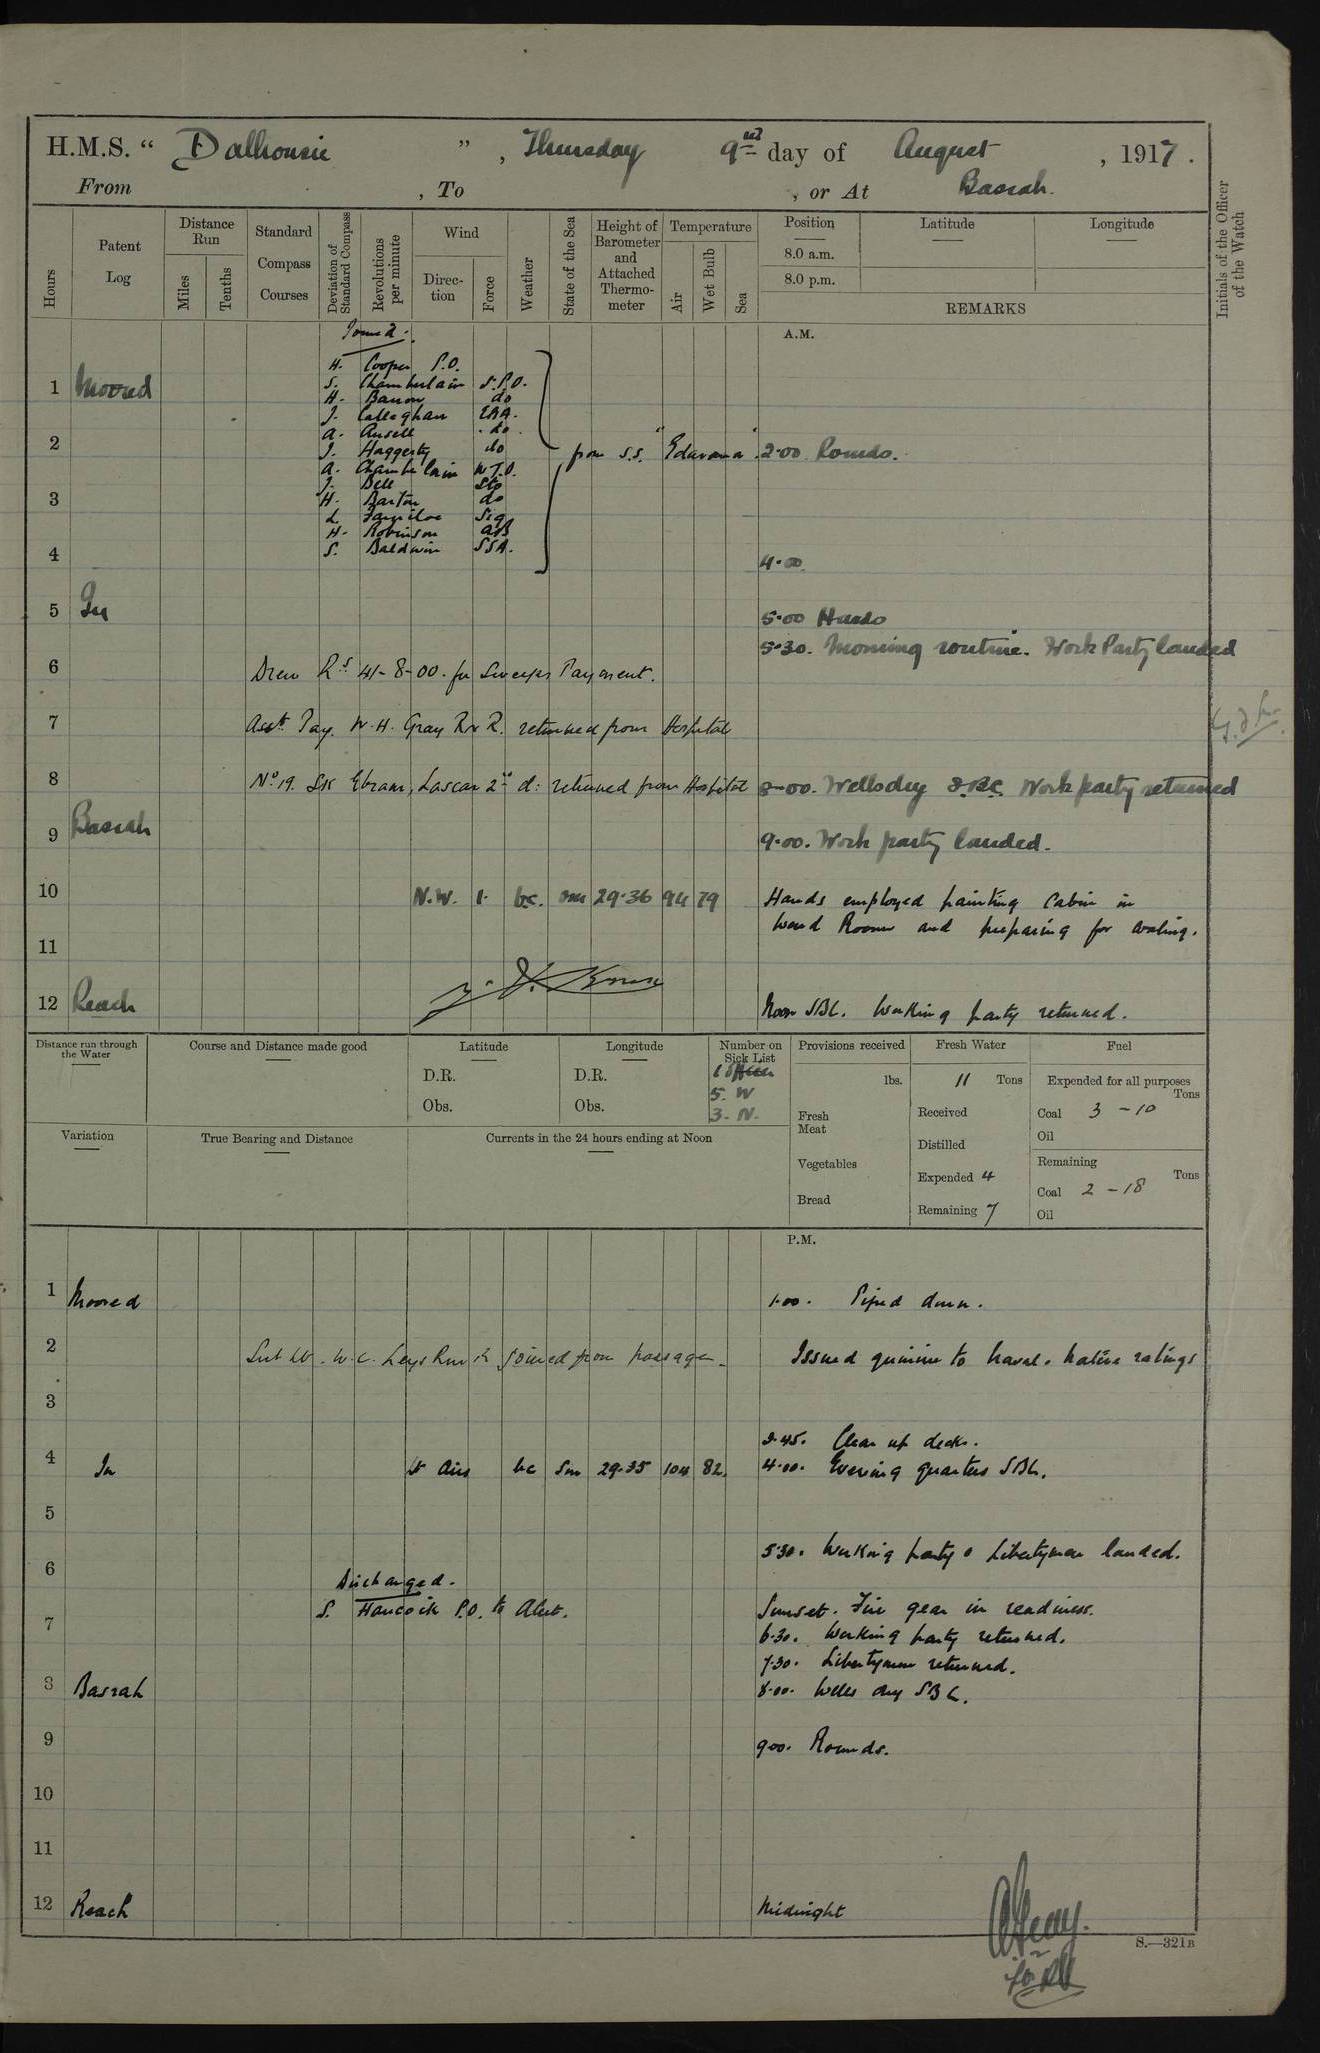 H.M.S. " Dalhousie ", Thursday 9th day of August, 1917.
From , To , or At Basrah.
Hours
Patent Log
Distance Run
Miles
Tenths
Standard Compass Courses
Deviation of Standard Compass
Revolutions per minute
Wind
Direction
Force
Weather
State of the Sea
Height of Barometer and Attached Thermometer
Temperature
Air
Wet Bulb
Sea
Position
8.0 a.m.
8.0 p.m.
Latitude
Longitude
REMARKS
Initials of the Officer of the Watch
A.M.
Joined.
H. Cooper P.O.
S. Chamberlain S.P.O.
H. Barron do
1 Moored
J. Callaghan ERA.
A. Ansell do
J. Haggerty do
2 from S.S. "Edavana". 2.00 Rounds.
A. Chamberlain W.T.O.
J. Bell Sto
H. Barton do
3
L. Sig
H. Robinson AB
S. Baldwin SSA.
4 4.00
5 In 5.00 Hands
5.30. Morning routine. Work Party landed
6 Drew Rs 41-8-00. for Sweeper Payment.
7 Asst Pay. W.H. Gray RNR. returned from Hospital
8 No 19. SK Ebram, Lascar 2nd d: returned from Hospital 8.00. Wells dry S.B.C. Work party returned
9 Basrah 9.00. Work party landed.
10 N.W. 1. bc. sm 29.36 94 79 Hands employed painting Cabin in
Ward Room and preparing for coaling.
11
12 Reach Noon SBC. Working party returned.
Distance run through the Water
Course and Distance made good
Latitude
D.R.
Obs.
Longitude
D.R.
Obs.
Number on Sick List
1 Officer
5. W
3. N.
Provisions received
lbs.
Fresh Meat
Vegetables
Bread
Fresh Water
11 Tons
Received
Distilled
Expended 4
Remaining 7
Fuel
Expended for all purposes
Tons
Coal 3 - 10
Oil
Remaining
Tons
Coal 2 - 18
Oil
Variation
True Bearing and Distance
Currents in the 24 hours ending at Noon
P.M.
1 Moored 1.00. Piped down.
2 Sub Lt. W.C. Leys RNR joined from passage. Issued quinine to Naval & Native ratings
3
3.45. Clear up decks.
4 In Lt Airs bc Sm 29.35 104 82 4.00. Evening quarters SBC.
5
5.30. Working party & Libertymen landed.
6
Discharged.
S. Hancock P.O. to Alert. Sunset. Fire gear in readiness.
7 6.30. Working party returned.
7.30. Libertymen returned.
8 Basrah 8.00. Wells dry SBC.
9 9.00. Rounds.
10
11
12 Reach Midnight
S.—321B